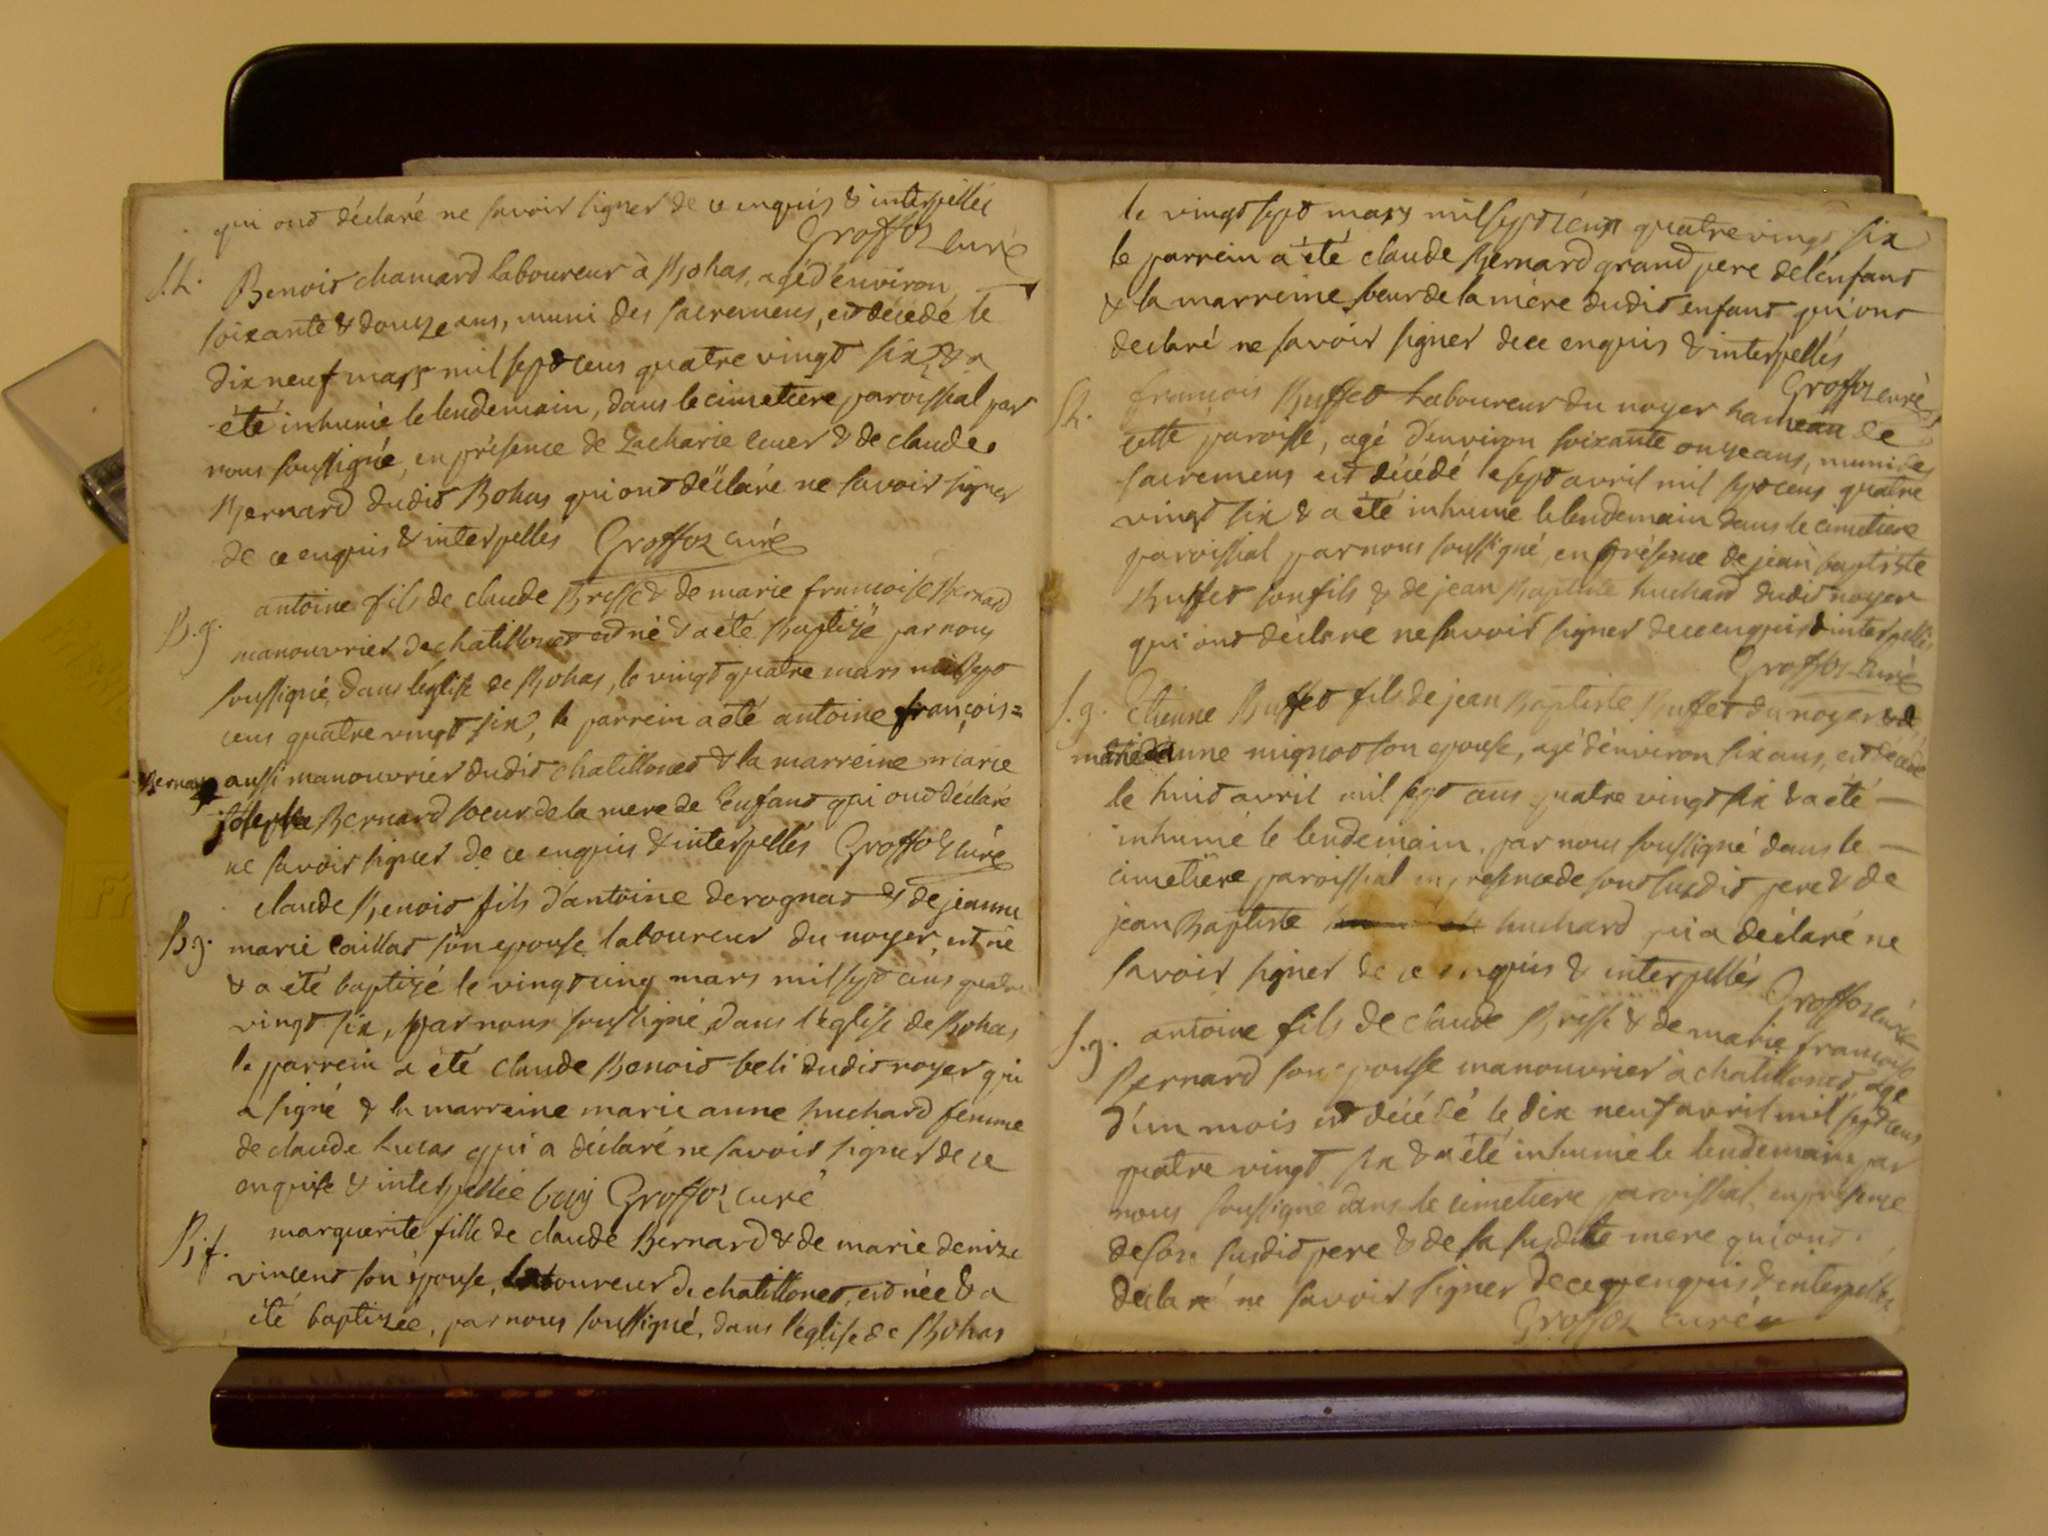 qui ont déclaré ne savoir signer de ce enquis & interpellés
Groffoz curé
S.h. Benoit chamard laboureur à Bohas, agé d'environ
soixante & douze ans, muni des sacremens, est décédé le
dix neuf mars mil sept cens quatre vingt six, & a
été inhumé le lendemain, dans le cimetiere paroissial par
nous soussigné, en présence de Zacharie cuer & de claude
Bernard dudit Bohas qui ont déclaré ne savoir signer
de ce enquis & interpellés Groffoz curé
B.g. antoine fils de claude Bresse & de marie francoise Bernard
manouvrier de chatillonet est né & a été Baptizé par nous
soussigné, dans l'eglise de Bohas, le vingt quatre mars mil sept
cens quatre vingt six, le parrein a été antoine françois=
Bernard aussi manouvrier dudit chatillonet & la marreine marie
josephe Bernard soeur de la mere de l'enfant qui ont déclaré
ne savoir signer de ce enquis & interpellés Groffoz curé
claude Benoit fils d'antoine derognat & de jeanne
B.g. marie caillat son epouse laboureur du noyer, est né
& a été baptizé le vingt cinq mars mil sept cens quatre
vingt six, par nous soussigné, dans l'église de Bohas,
le parrein a été claude Benoit beli dudit noyer qui
a signé & la marreine marie anne huchard femme
de claude lucas qui a déclaré ne savoir signer de ce
enquise & interpellée Groffoz curé
B.f. marguerite fille de claude Bernard & de marie denize
vincent son épouse, laboureur de chatillonet, est née & a
été baptizée, par nous soussigné, dans l'église de Bohas
le vingt sept mars mil sept cens quatre vingt six
le parrein a été claude Bernard grand pere de l'enfant
& la marreine soeur de la mère dudit enfant qui ont
declaré ne savoir signer de ce enquis & interpellés
Groffoz curé
S.h. francois Buffet Laboureur du noyer hameau de
cette paroisse, agé d'environ soixante onze ans, muni des
sacremens est décédé le sept avril mil sept cens quatre
vingt six & a été inhumé le lendemain dans le cimetiere
paroissial par nous soussigné, en présence de jean baptiste
Buffet son fils & de jean Baptiste huchard dudit noyer
qui ont déclaré ne savoir signer de ce enquis & interpellés
Groffoz curé
S.g. Etienne Buffet fils de jean Baptiste Buffet du noyer & de
marie anne mignot son epouse, agé d'environ six ans, est décédé
le huit avril mil sept cens quatre vingt six & a été —
inhumé le lendemain, par nous soussigné dans le —
cimetière paroissial en presence de son susdit pere & de
jean Baptiste huchard qui a déclaré ne
savoir signer de ce enquis & interpellés
Groffoz curé
S.g. antoine fils de claude Bresse & de marie francoise
Bernard son epouse manouvrier à chatillonet, agé
d'un mois est décédé le dix neuf avril mil sept cens
quatre vingt six & a été inhumé le lendemain par
nous soussigné dans le cimetiere paroissial, en présence
de son susdit pere & de sa susdite mere qui ont
déclaré ne savoir signer de ce enquis & interpellés
Groffoz curé